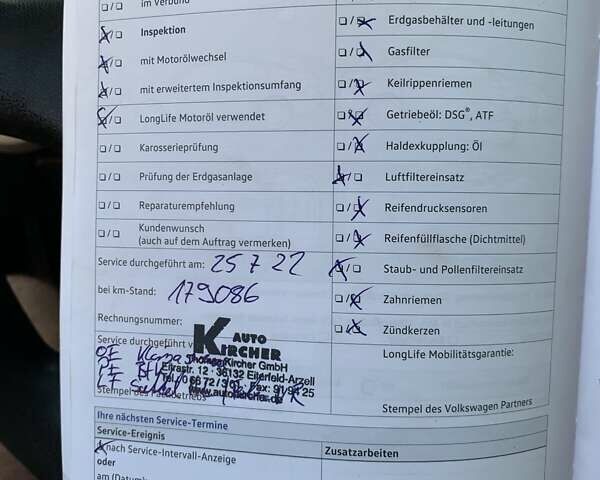 im Verbund
Inspektion
mit Motorölwechsel
mit erweitertem Inspektionsumfang
LongLife Motoröl verwendet
Karosserieprüfung
Prüfung der Erdgasanlage
Reparaturempfehlung
Kundenwunsch
(auch auf dem Auftrag vermerken)
Service durchgeführt am: 25 7 22
bei km-Stand: 179086
Rechnungsnummer:
Service durchgeführt
AUTO
KIRCHER
Kircher GmbH
36132 Eiterfeld-Arzell
Fax:
Stempel des
Erdgasbehälter und -leitungen
Gasfilter
Keilrippenriemen
Getriebeöl: DSG®, ATF
Haldexkupplung: Öl
Luftfiltereinsatz
Reifendrucksensoren
Reifenfüllflasche (Dichtmittel)
Staub- und Pollenfiltereinsatz
Zahnriemen
Zündkerzen
LongLife Mobilitätsgarantie:
Stempel des Volkswagen Partners
Ihre nächsten Service-Termine
Service-Ereignis
nach Service-Intervall-Anzeige
oder
am (Datum)
Zusatzarbeiten